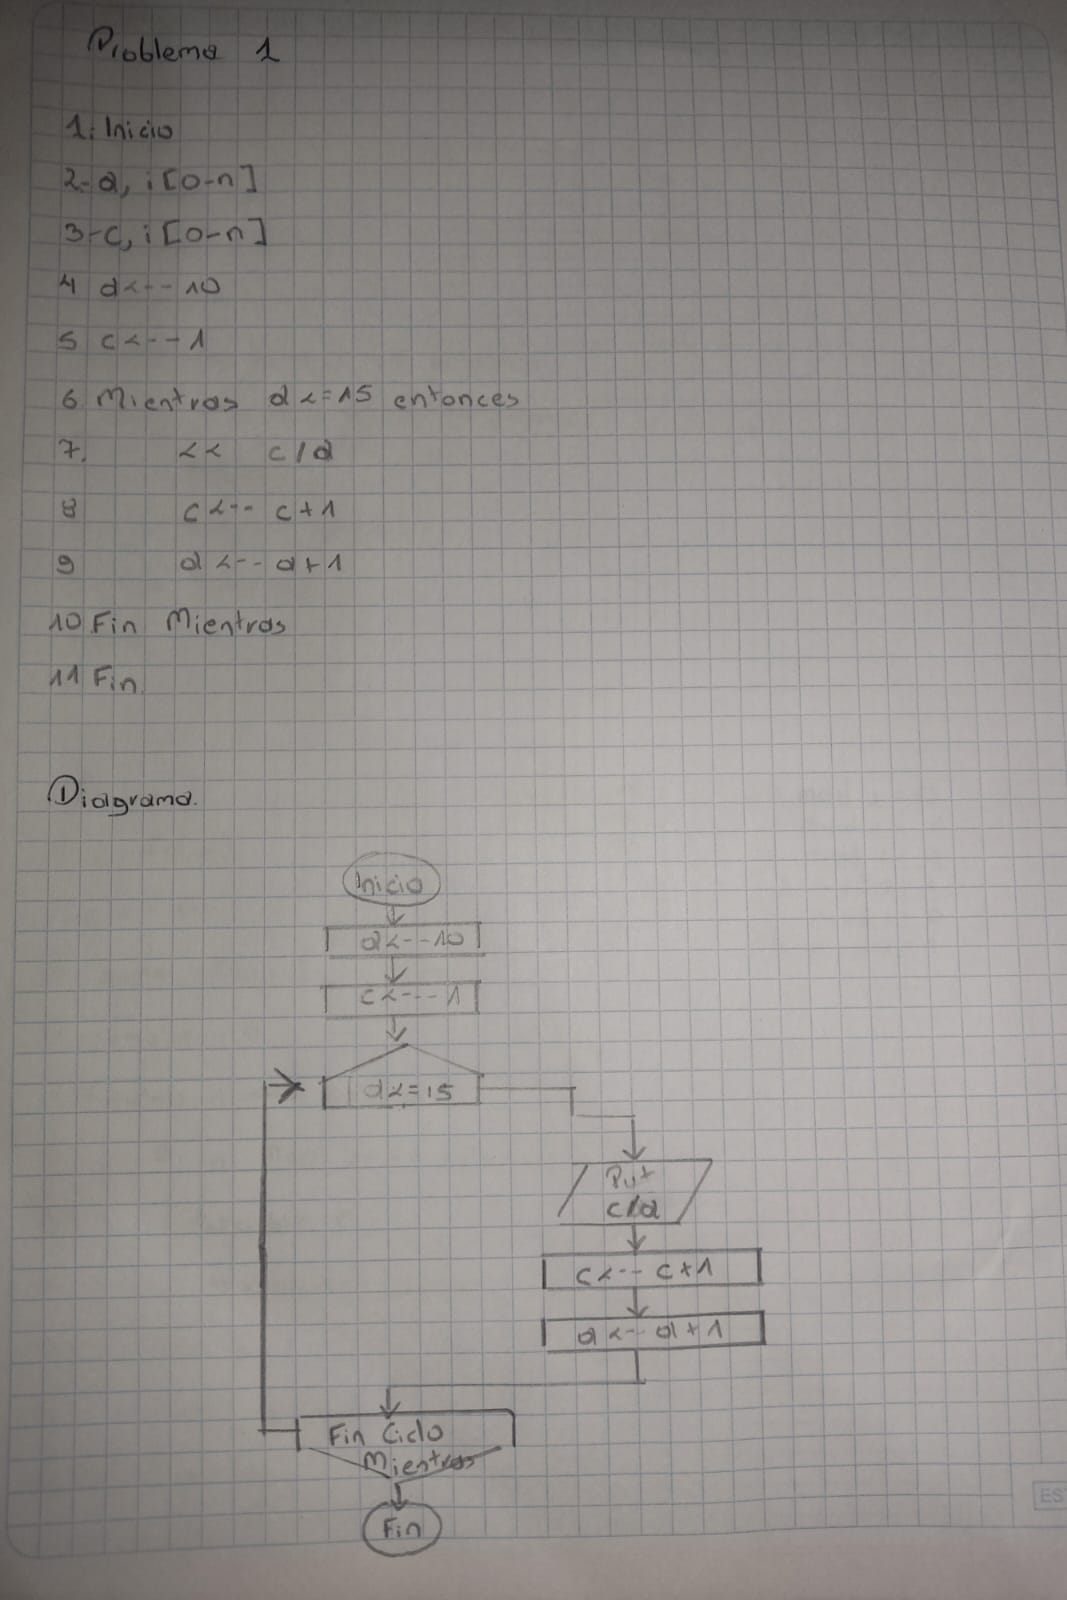 Problema 1
1. Inicio
2- d, i [0-n]
3- c, i [0-n]
4 d <-- 10
5 c <-- 1
6 Mientras d <= 15 entonces
7. << c/d
8 c <-- c+1
9 d <-- d+1
10 Fin Mientras
11 Fin.
Diagrama.
Inicio
d <-- 10
c <--- 1
d <= 15
Put
c/d
c <-- c+1
d <-- d+1
Fin Ciclo
Mientras
Fin
ES